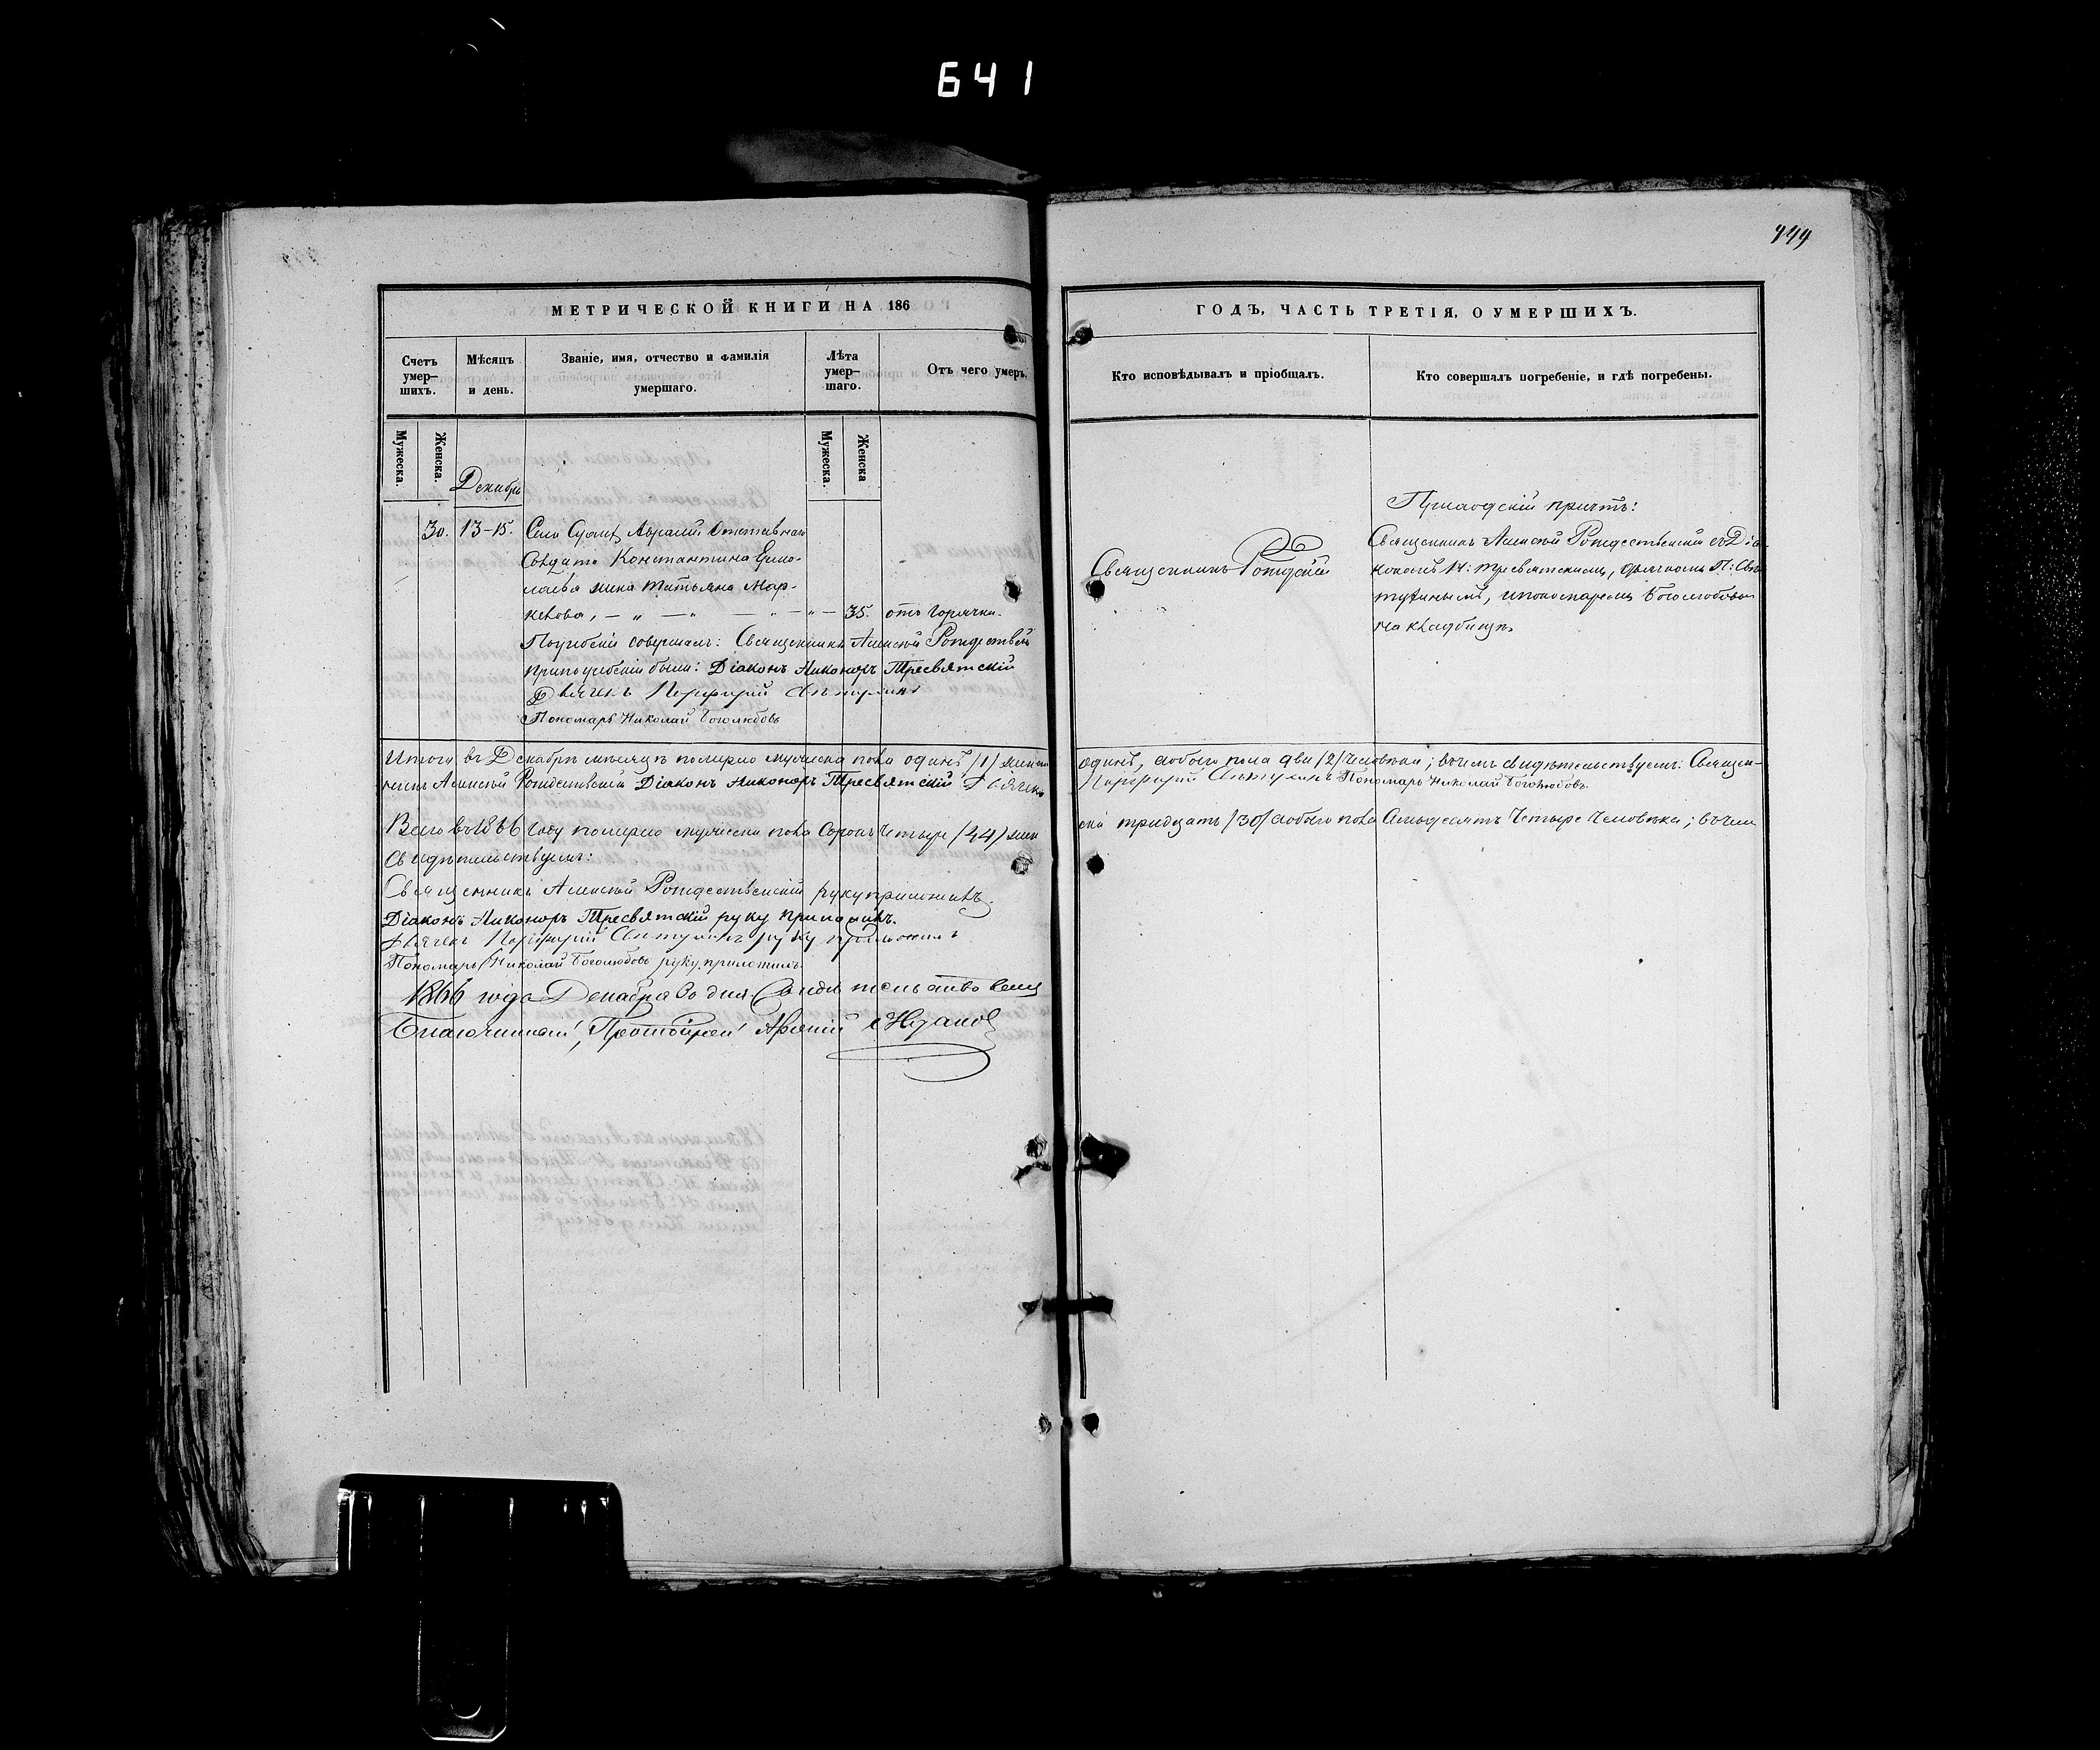 641
444
МЕТРИЧЕСКОЙ КНИГИ НА 186
Счетъ умер-
шихъ.
Мѣсяцъ
и день.
Званіе, имя, отчество и фамилія
умершаго.
Лѣта
умер-
шаго.
Отъ чего умеръ.
Мужеска.
Женска.
Мужеска.
Женска
Декабрь
30. 13-15. Село Отставнаго
Солдата Константина Ермо-
лаева жена Татьяна Мар-
келова, — „ — „ — „ — „ — 35. отъ горячки.
Погребеніе совершалъ: Священникъ Алексѣй Рождественскій
при погребеніи были: Діаконъ Никоноръ Тресвятскій
Дьячекъ Порфирій
Пономарь Николай Боголюбовъ
Итого въ Декабрѣ мѣсяцѣ померло мужеска пола одинъ /1/ женска
никъ Алексѣй Рождественскій Діаконъ Никоноръ Тресвятскій Дьячекъ
Всего въ 1866 году померло мужеска пола Сорокъ Четыре /44/ жен
Свидѣтельствуемъ:
Священникъ Алексѣй Рождественскій руку приложилъ.
Діаконъ Никоноръ Тресвятскій руку приложилъ.
Дьячекъ Порфирій руку приложилъ
Пономарь Николай Боголюбовъ руку приложилъ.
1866 года Декабря 30 дня Свидѣтельствовалъ
Благочинный, Протоіерей
ГОДЪ, ЧАСТЬ ТРЕТІЯ, О УМЕРШИХЪ.
Кто исповѣдывалъ и пріобщалъ.
Кто совершалъ погребеніе, и гдѣ погребены.
Священникъ
Приходскій причтъ:
Священникъ Алексѣй Рождественскій съ Діа-
кономъ Н: Тресвятскимъ, дьячкомъ П:
и пономаремъ Боголюбовымъ
на кладбищѣ.
одинъ, обоего пола два /2/ человѣка; въ чемъ свидѣтельствуемъ: Священ-
Порфирій Пономарь Николай Боголюбовъ.
ска тридцать /30/ обоего пола Семьдесятъ Четыре Человѣка; въ чемъ